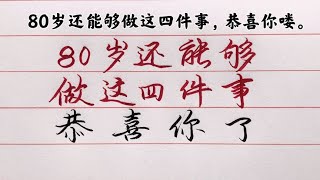 80岁还能够做这四件事，恭喜你喽。
80岁还能够
做这四件事
恭喜你了